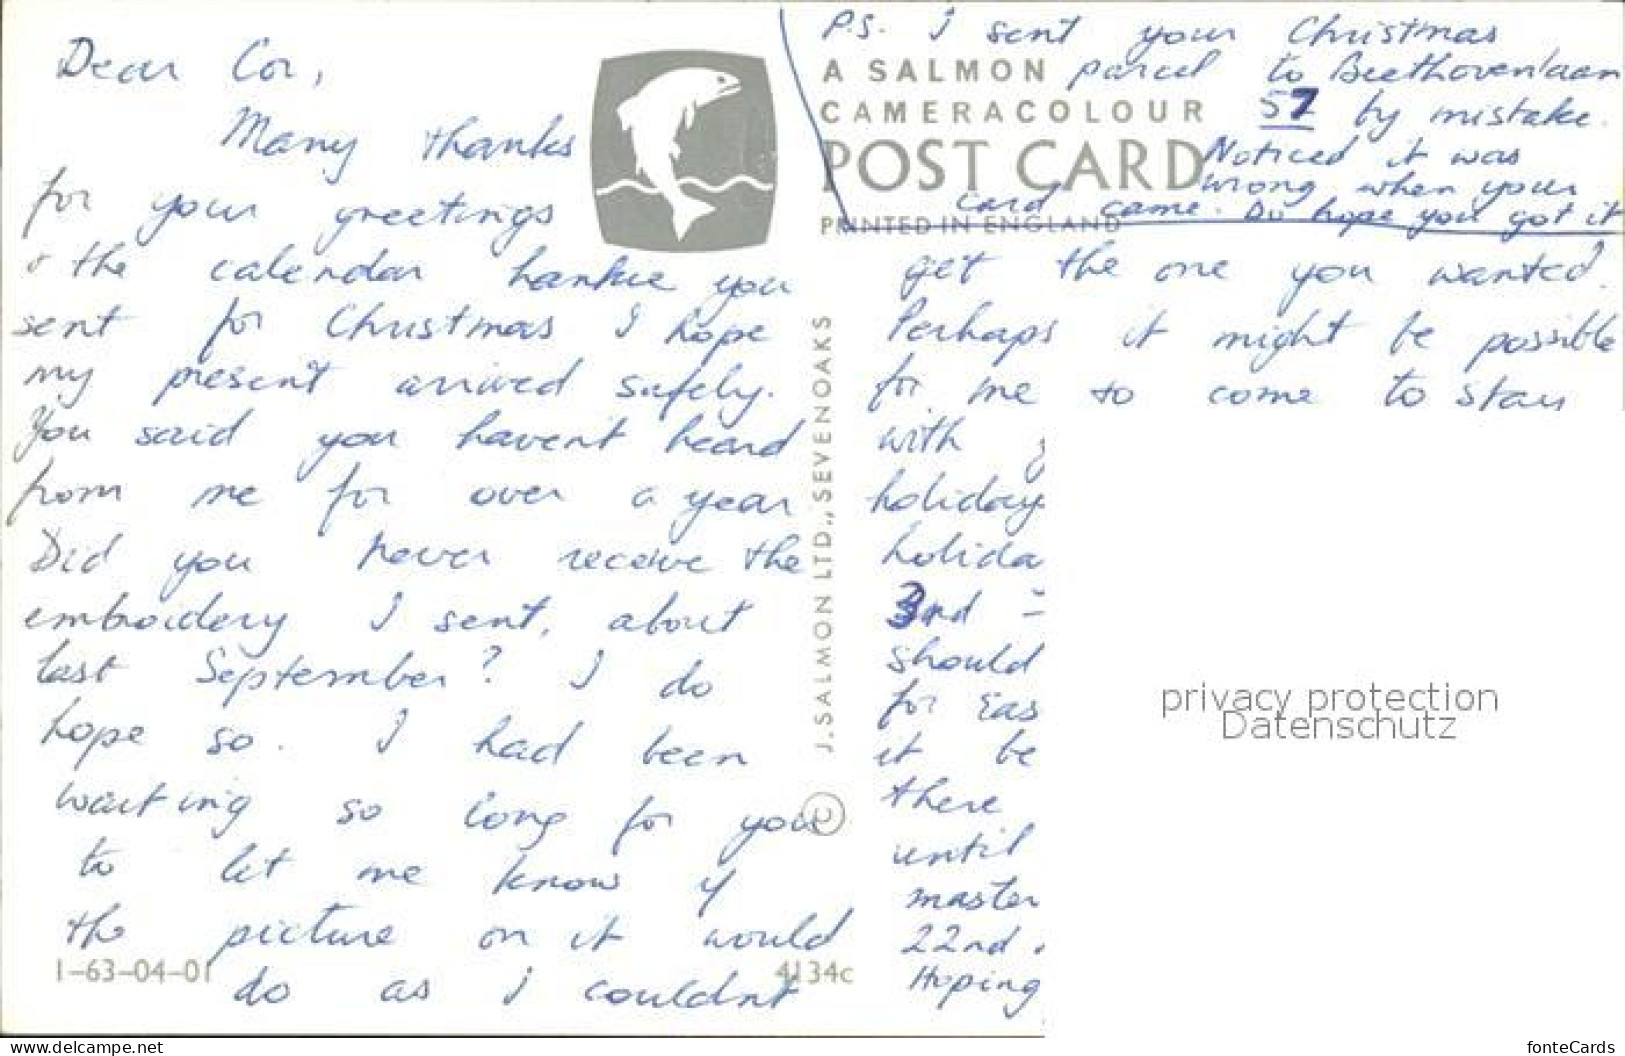 Dear Cor,
Many thanks
for your greetings
& the calendar hankie you
sent for Christmas I hope
my present arrived safely.
You said you havent heard
from me for over a year
Did you never receive the
embroidery I sent, about
last September? I do
hope so. I had been
waiting so long for you
to let me know if
the picture on it would
do as I couldnt
1-63-04-01
4134c
J. SALMON LTD., SEVENOAKS ©
P.S. I sent your Christmas
parcel to Beethovenlaan
57 by mistake.
Noticed it was
wrong when your
card came. Do hope you got it
A SALMON
CAMERACOLOUR
POST CARD
PRINTED IN ENGLAND
get the one you wanted.
Perhaps it might be possible
for me to come to stay
with
holiday
holida
3rd
should
for Eas
it be
there
until
master
22nd.
Hoping
privacy protection
Datenschutz
www.delcampe.net
fonteCards